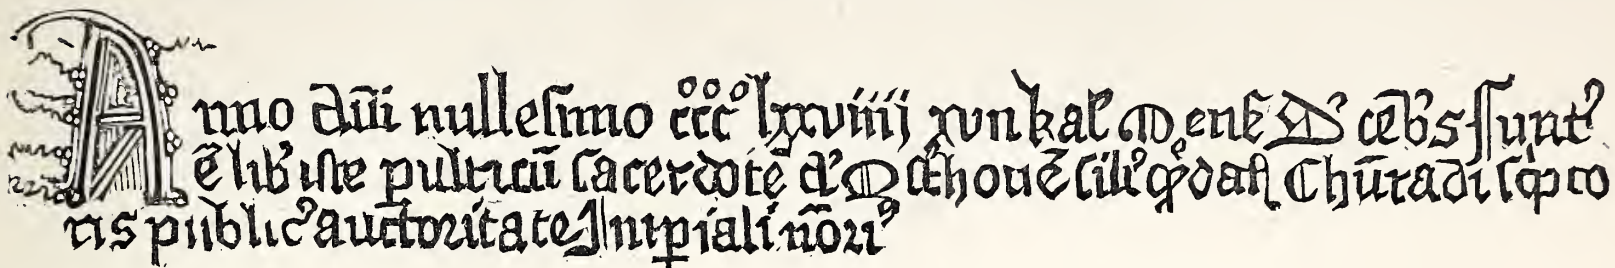 Anno dn̄i millesimo c̊c̊c̊ lxxviiij xvii kal' Menẜ D' cēb's ffinit'
ē lib' iste p ultricū sacerdotē d' Mathouē fili' q°dam Chūradi sc'pto
ris public' auctoritate Inꝑiali nōri'